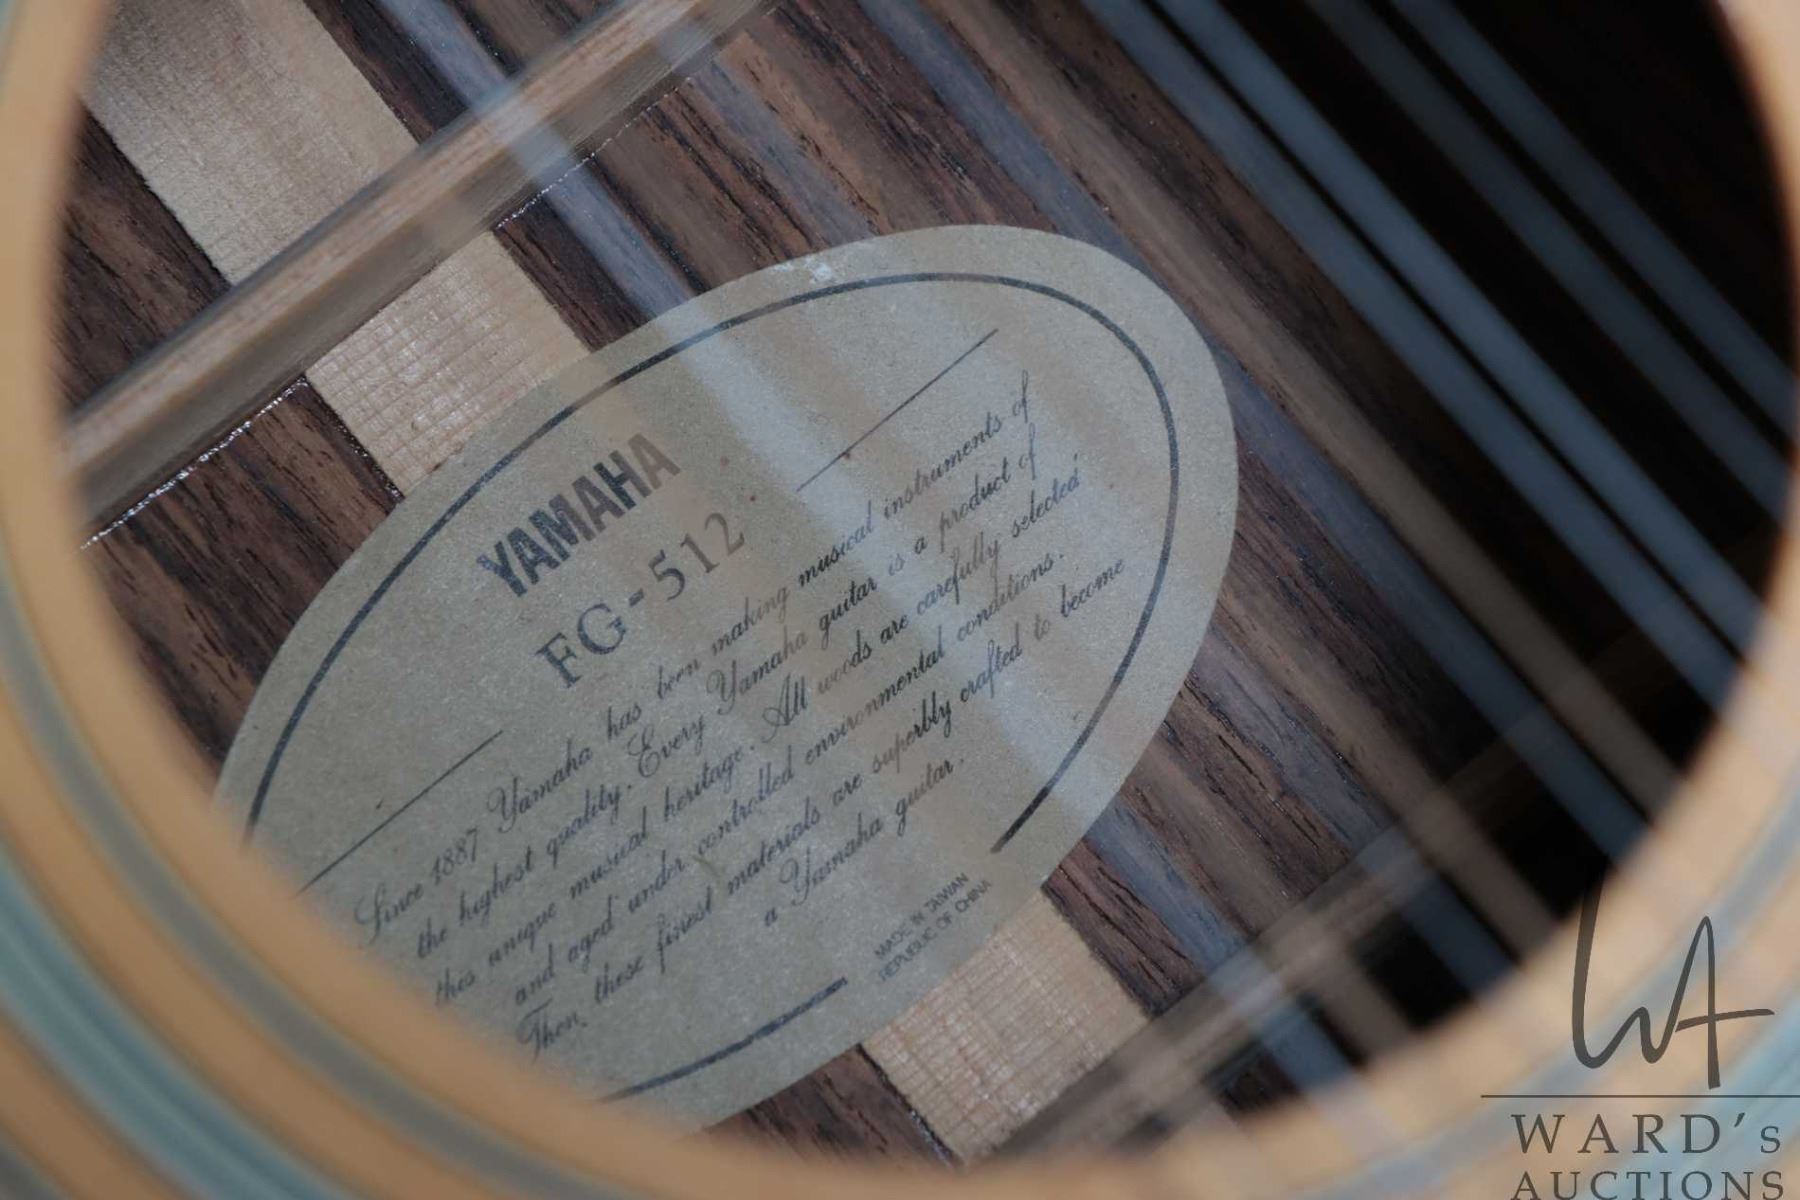 YAMAHA
FG-512
Since 1887 Yamaha has been making musical instruments of
the highest quality. Every Yamaha guitar is a product of
this unique musical heritage. All woods are carefully selected
and aged under controlled environmental conditions.
Then, these finest materials are superbly crafted to become
a Yamaha guitar.
MADE IN TAIWAN
REPUBLIC OF CHINA
WA
WARD's
AUCTIONS